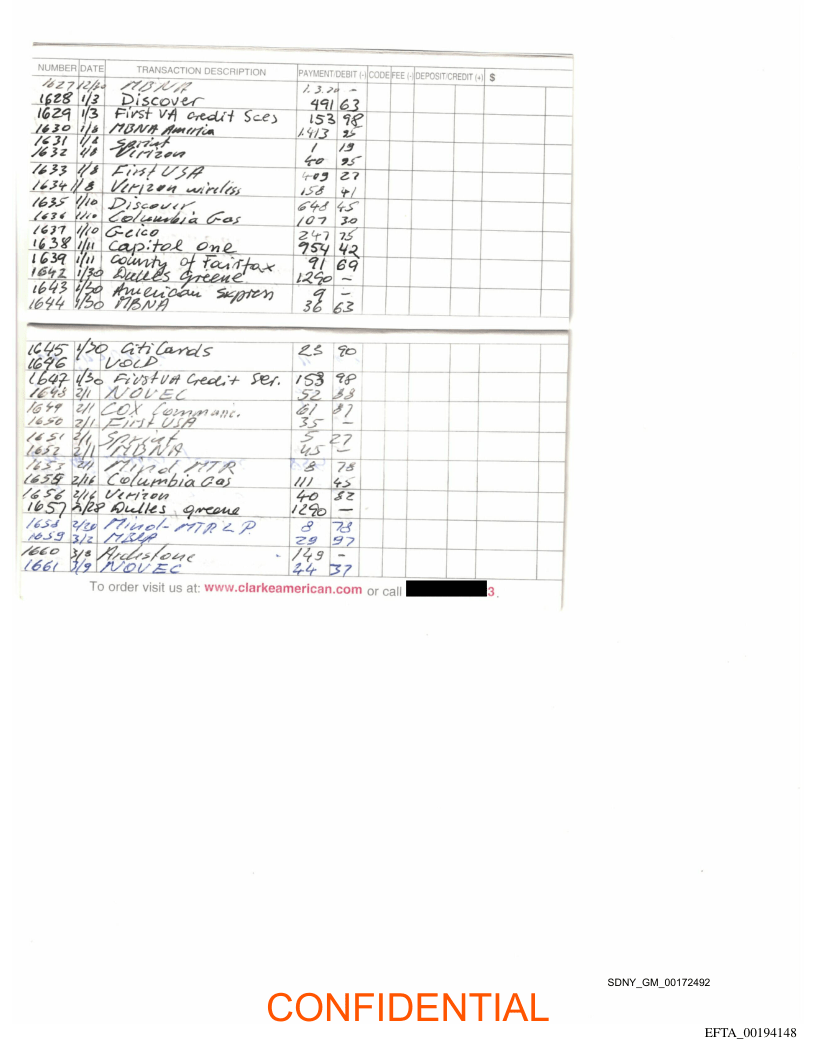 NUMBER DATE TRANSACTION DESCRIPTION PAYMENT/DEBIT (-) CODE FEE (-) DEPOSIT/CREDIT (+) $
1627 MBNA
1628 1/3 Discover 491 63
1629 1/3 First VA credit Sces 153 98
1630 1/8 MBNA America 1413 25
1631 1/8 Sprint 1 19
1632 1/8 Verizon 40 95
1633 1/8 First USA 409 27
1634 1/8 Verizon wireless 158 41
1635 1/10 Discover 648 45
1636 1/10 Columbia Gas 107 30
1637 1/10 Geico 247 75
1638 1/11 Capitol one 954 42
1639 1/11 County of Fairfax 91 69
1642 1/30 Dulles Greene 1290 —
1643 1/30 American Express 9 —
1644 1/30 MBNA 36 63
1645 1/30 Citi Cards 23 90
1646 VOLD
1647 1/30 First VA Credit Ser. 153 98
1648 2/1 NOVEC 52 33
1649 2/1 COX Communic. 61 87
1650 2/1 First USA 35 —
1651 2/1 Sprint 5 27
1652 2/1 MBNA 45 —
1653 2/1 Minol MTR 8 78
1655 2/16 Columbia Gas 111 45
1656 2/16 Verizon 40 32
1657 2/28 Dulles greene 1290 —
1658 2/20 Minol-MTR L P. 8 78
1659 3/2 29 97
1660 3/8 149 —
1661 3/9 NOVEC 44 37
To order visit us at: www.clarkeamerican.com or call 3.
SDNY_GM_00172492
CONFIDENTIAL
EFTA_00194148